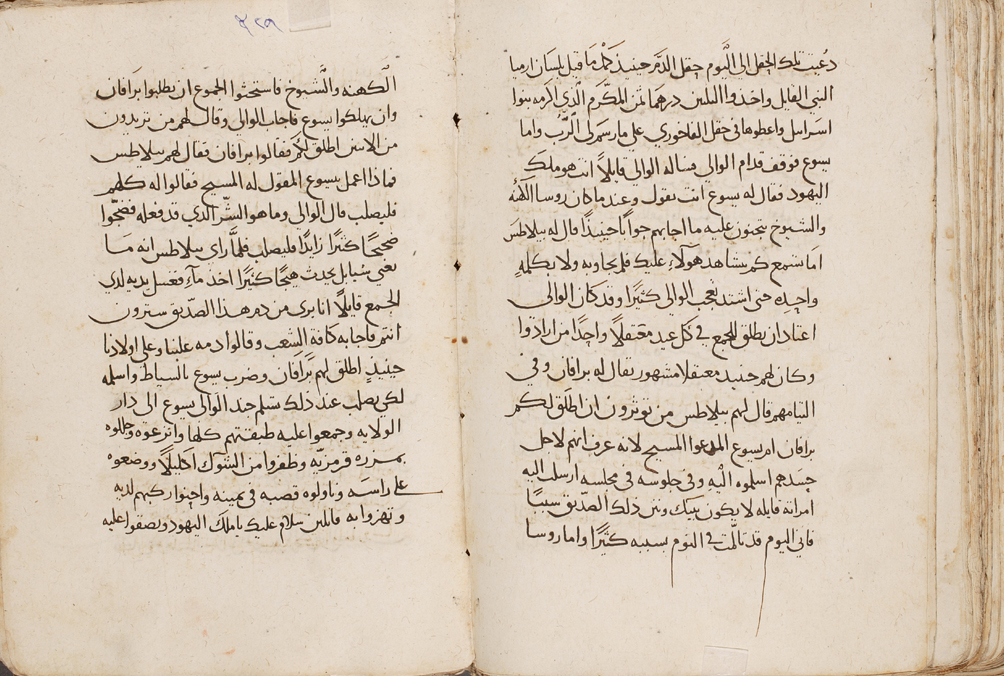 دعيت تلك الحقل الى اليوم حقل الدم حينيذ كمل ما قيل بلسان ارميا
النبي القايل واخذوا الثلثين درهما ثمن المكرم الذي اكرمه بنوا
اسراييل واعطوها في حقل الفاخوري على ما رسم لي الرب واما
يسوع فوقف قدام الوالي فساله الوالي قايلاً انت هو ملك
اليهود فقال له يسوع انت تقول وعند ما كان روسا الكهنه
والشيوخ يتجنون عليه ما اجابهم جواباً حينيذاً قال له بيلاطس
اما تسمع كم يشاهد هولاء عليك فلم يجاوبه ولا بكلمهٍ
واحده حتى اشتد تعجب الوالي كثيرًا وقد كان الوالي
اعتاد ان يطلق للجمع في كل عيد معتقلاً واحدًا من ارادوا
وكان لهم حينيد معتقلا مشهور يقال له برافان وفي
التيامهم قال لهم بيلاطس من توثرون ان اطلق لكم
برافان ام يسوع المدعوا المسيح لانه عرف انهم لاجل
حسدهم اسلموه اليه وفي جلوسه في مجلسه ارسلت اليه
امراته قايله لا يكون بينك وبين ذلك الصديق سببًا
فاني اليوم قد تالمت في النوم بسببه كثيرًا واما روسا
٣٢٩
الكهنه والشيوخ فاستحثوا الجموع ان يطلبوا برافان
وان يهلكوا يسوع فاجاب الوالي وقال لهم من تريدون
من الاثنين اطلق لكم فقالوا برافان فقال لهم بيلاطس
فماذا اعمل بيسوع المقول له المسيح فقالوا له كلهم
فليصلب قال الوالي وما هو الشر الذي قد فعله فضجوا
ضجيجًا كثيرًا زايدًا فليصلب فلما راى بيلاطس انه ما
يغني شيا بل يحدث هيجًا كثيرًا اخذ مآء فغسل يديه لدي
الجمع قايلاً انا بري من دم هذا الصديق سترون
انتم فاجابه كافة الشعب وقالوا دمه علينا وعلى اولادنا
حينيذٍ اطلق لهم برافان وضرب يسوع بالسياط واسلمه
لكي يصلب عند ذلك تسلم جند الوالي يسوع الى دار
الولايه وجمعوا عليه طبقتهم كلها وانزعوه وجللوه
قرمزيه وظفروا من الشوك اكليلاً ووضعوه
على راسه وناولوه قصبه في يمينه واحنوا ركبهم لديه
وتهزوا به قايلين سلام عليك يا ملك اليهود وبصقوا عليه